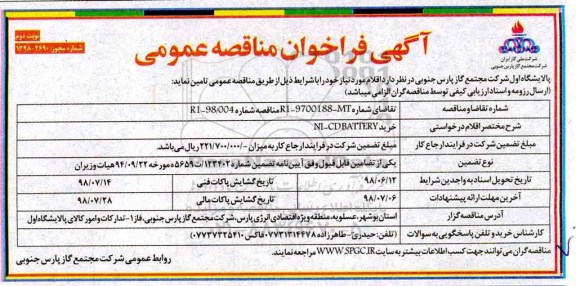 نوبت دوم
شماره مجوز: ۱۳۹۸،۲۶۹۰
آگهی فراخوان مناقصه عمومی
شرکت ملی گاز ایران
شرکت مجتمع گاز پارس جنوبی
پالایشگاه اول شرکت مجتمع گاز پارس جنوبی در نظر دارد اقلام مورد نیاز خود را با شرایط ذیل از طریق مناقصه عمومی تامین نماید:
(ارسال رزومه و اسناد ارزیابی کیفی توسط مناقصه گران الزامی میباشد)
شماره تقاضا و مناقصه تقاضای شماره R1-9700188-MT مناقصه شماره R1-98/004
شرح مختصر اقلام درخواستی خرید NI-CD BATTERY
مبلغ تضمین شرکت در فرایند ارجاع کار مبلغ تضمین شرکت در فرایند ارجاع کار به میزان -/۲۲۱/۷۰۰/۰۰۰ ریال می‌باشد.
نوع تضمین یکی از تضامین قابل قبول وفق آیین‌نامه تضمین شماره ۱۲۳۴۰۲/ت۵۶۵۹ه مورخه ۹۴/۰۹/۲۲ هیات وزیران
تاریخ تحویل اسناد به واجدین شرایط ۹۸/۰۶/۱۲ تاریخ گشایش پاکات فنی ۹۸/۰۷/۱۴
آخرین مهلت ارائه پیشنهادات ۹۸/۰۷/۰۶ تاریخ گشایش پاکات مالی ۹۸/۰۷/۲۸
آدرس مناقصه گزار استان بوشهر، عسلویه، منطقه ویژه اقتصادی انرژی پارس، شرکت مجتمع گاز پارس جنوبی، فاز۱- تدارکات و امور کالای پالایشگاه اول
کارشناس خرید و تلفن پاسخگویی به سوالات (تلفن: حیدری - طاهرزاده ۰۷۷۳۱۳۱۴۴۷۸ فاکس ۰۷۷۳۷۳۲۵۴۱۰)
مناقصه گران می توانند جهت کسب اطلاعات بیشتر به سایت WWW.SPGC.IR مراجعه نمایند.
روابط عمومی شرکت مجتمع گاز پارس جنوبی